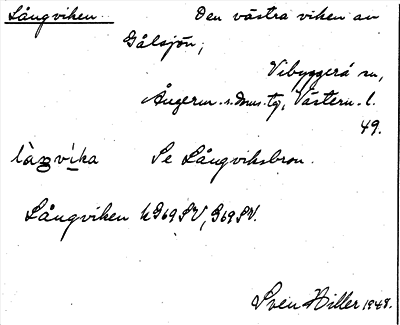 Långviken. Den västra viken av
Gålsjön;
Vibyggerå sn,
Ångerm. s. dms. tg, Västern. l.
49.
làŋvi̱ka Se Långviksbron.
Långviken k G69 SV, G69 SV.
Sven Hiller 1948.